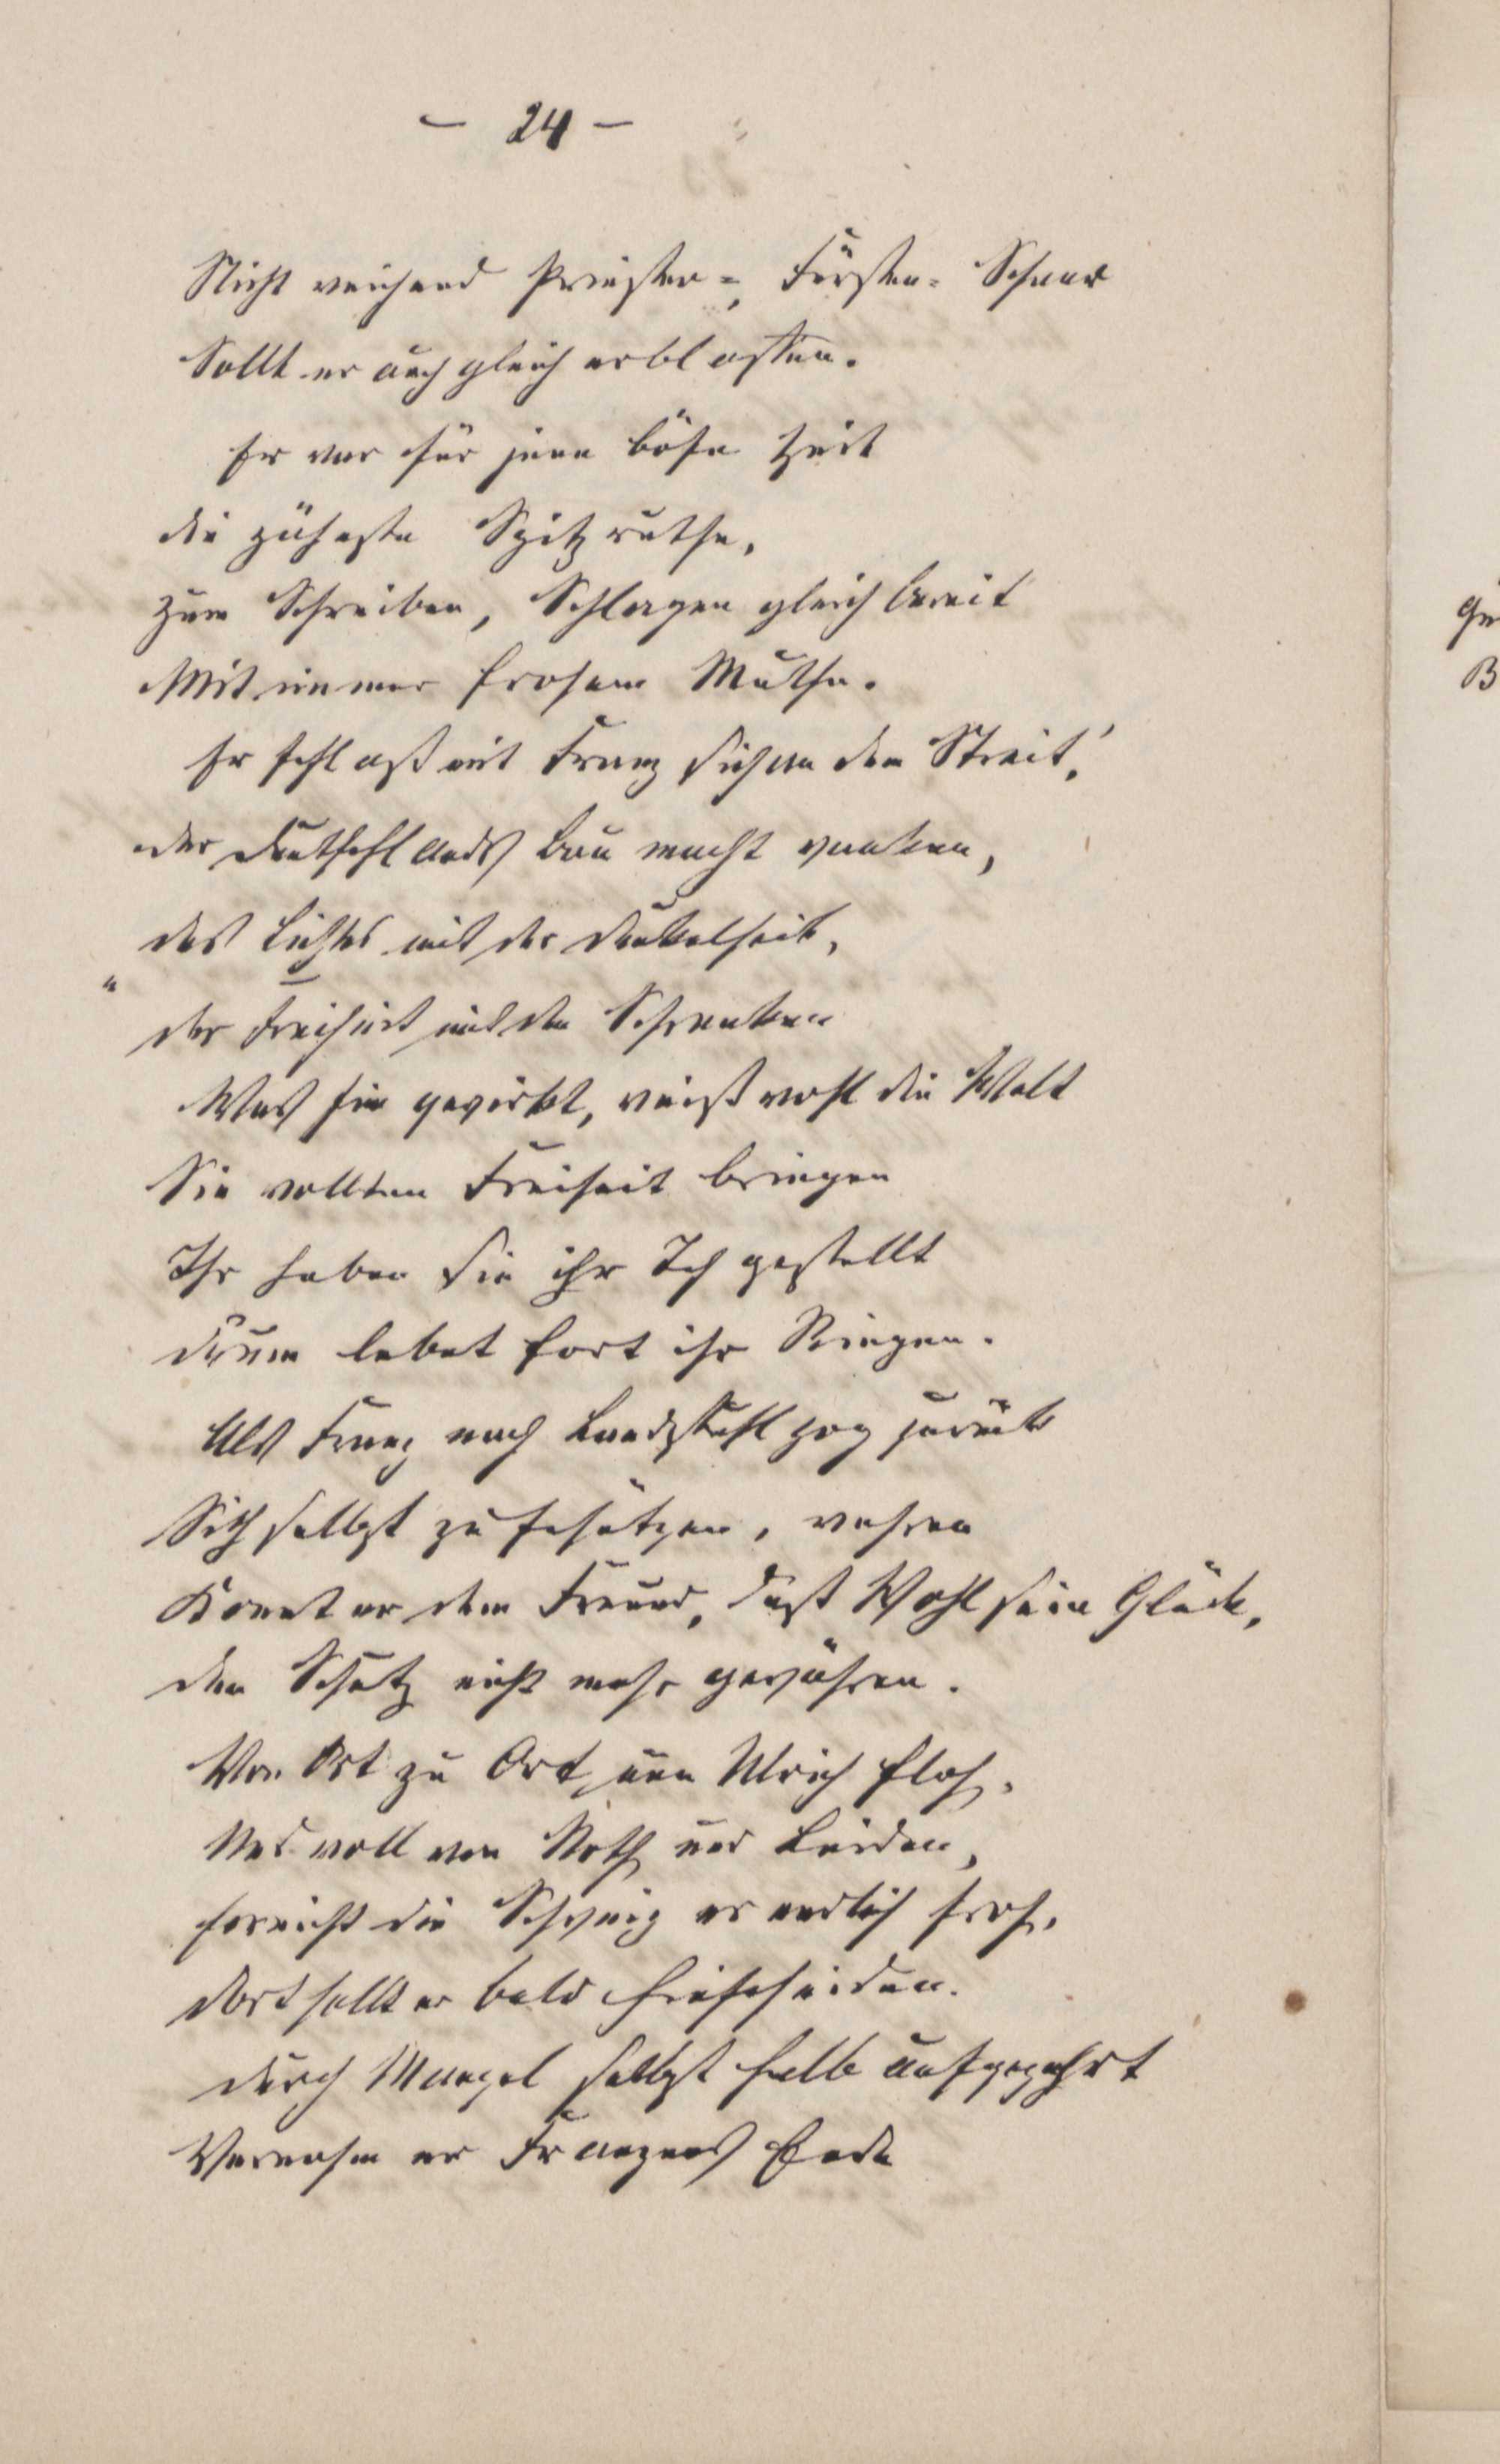 - 24 -
Nicht weichend Priester-, Fürsten-Schaar
Sollt er auch gleich erblassen.
Er war für jene böse Zeit
die zäheste Spitzruthe,
zum Schreiben, Schlagen gleich bereit
Mit immer frohem Muthe.
Er schloß mit Franz sich an den Streit,
der Deutschlands Bau macht wanken,
des Lichtes mit der Dunkelheit,
der Freiheit mit den Schranken
Was sie gewirkt, weiß wohl die Welt
Sie wollten Freiheit bringen
Ihr haben sie ihr Ich gestellt
drum lebet fort ihr Ringen.
Als Franz nach Landstuhl zog zurück
Sich selbst zu schützen, wehren
Konnt er dem Freund, deß Wohl sein Glück,
den Schutz nicht mehr gewähren.
Von Ort zu Ort nun Ulrich floh,
voll von Noth und Leiden,
Erreicht die Schweiz er endlich froh,
dort sollt er bald hinscheiden.
durch Mangel selbst halb aufgezehrt
Vernahm er Franzens Ende
Ge
B